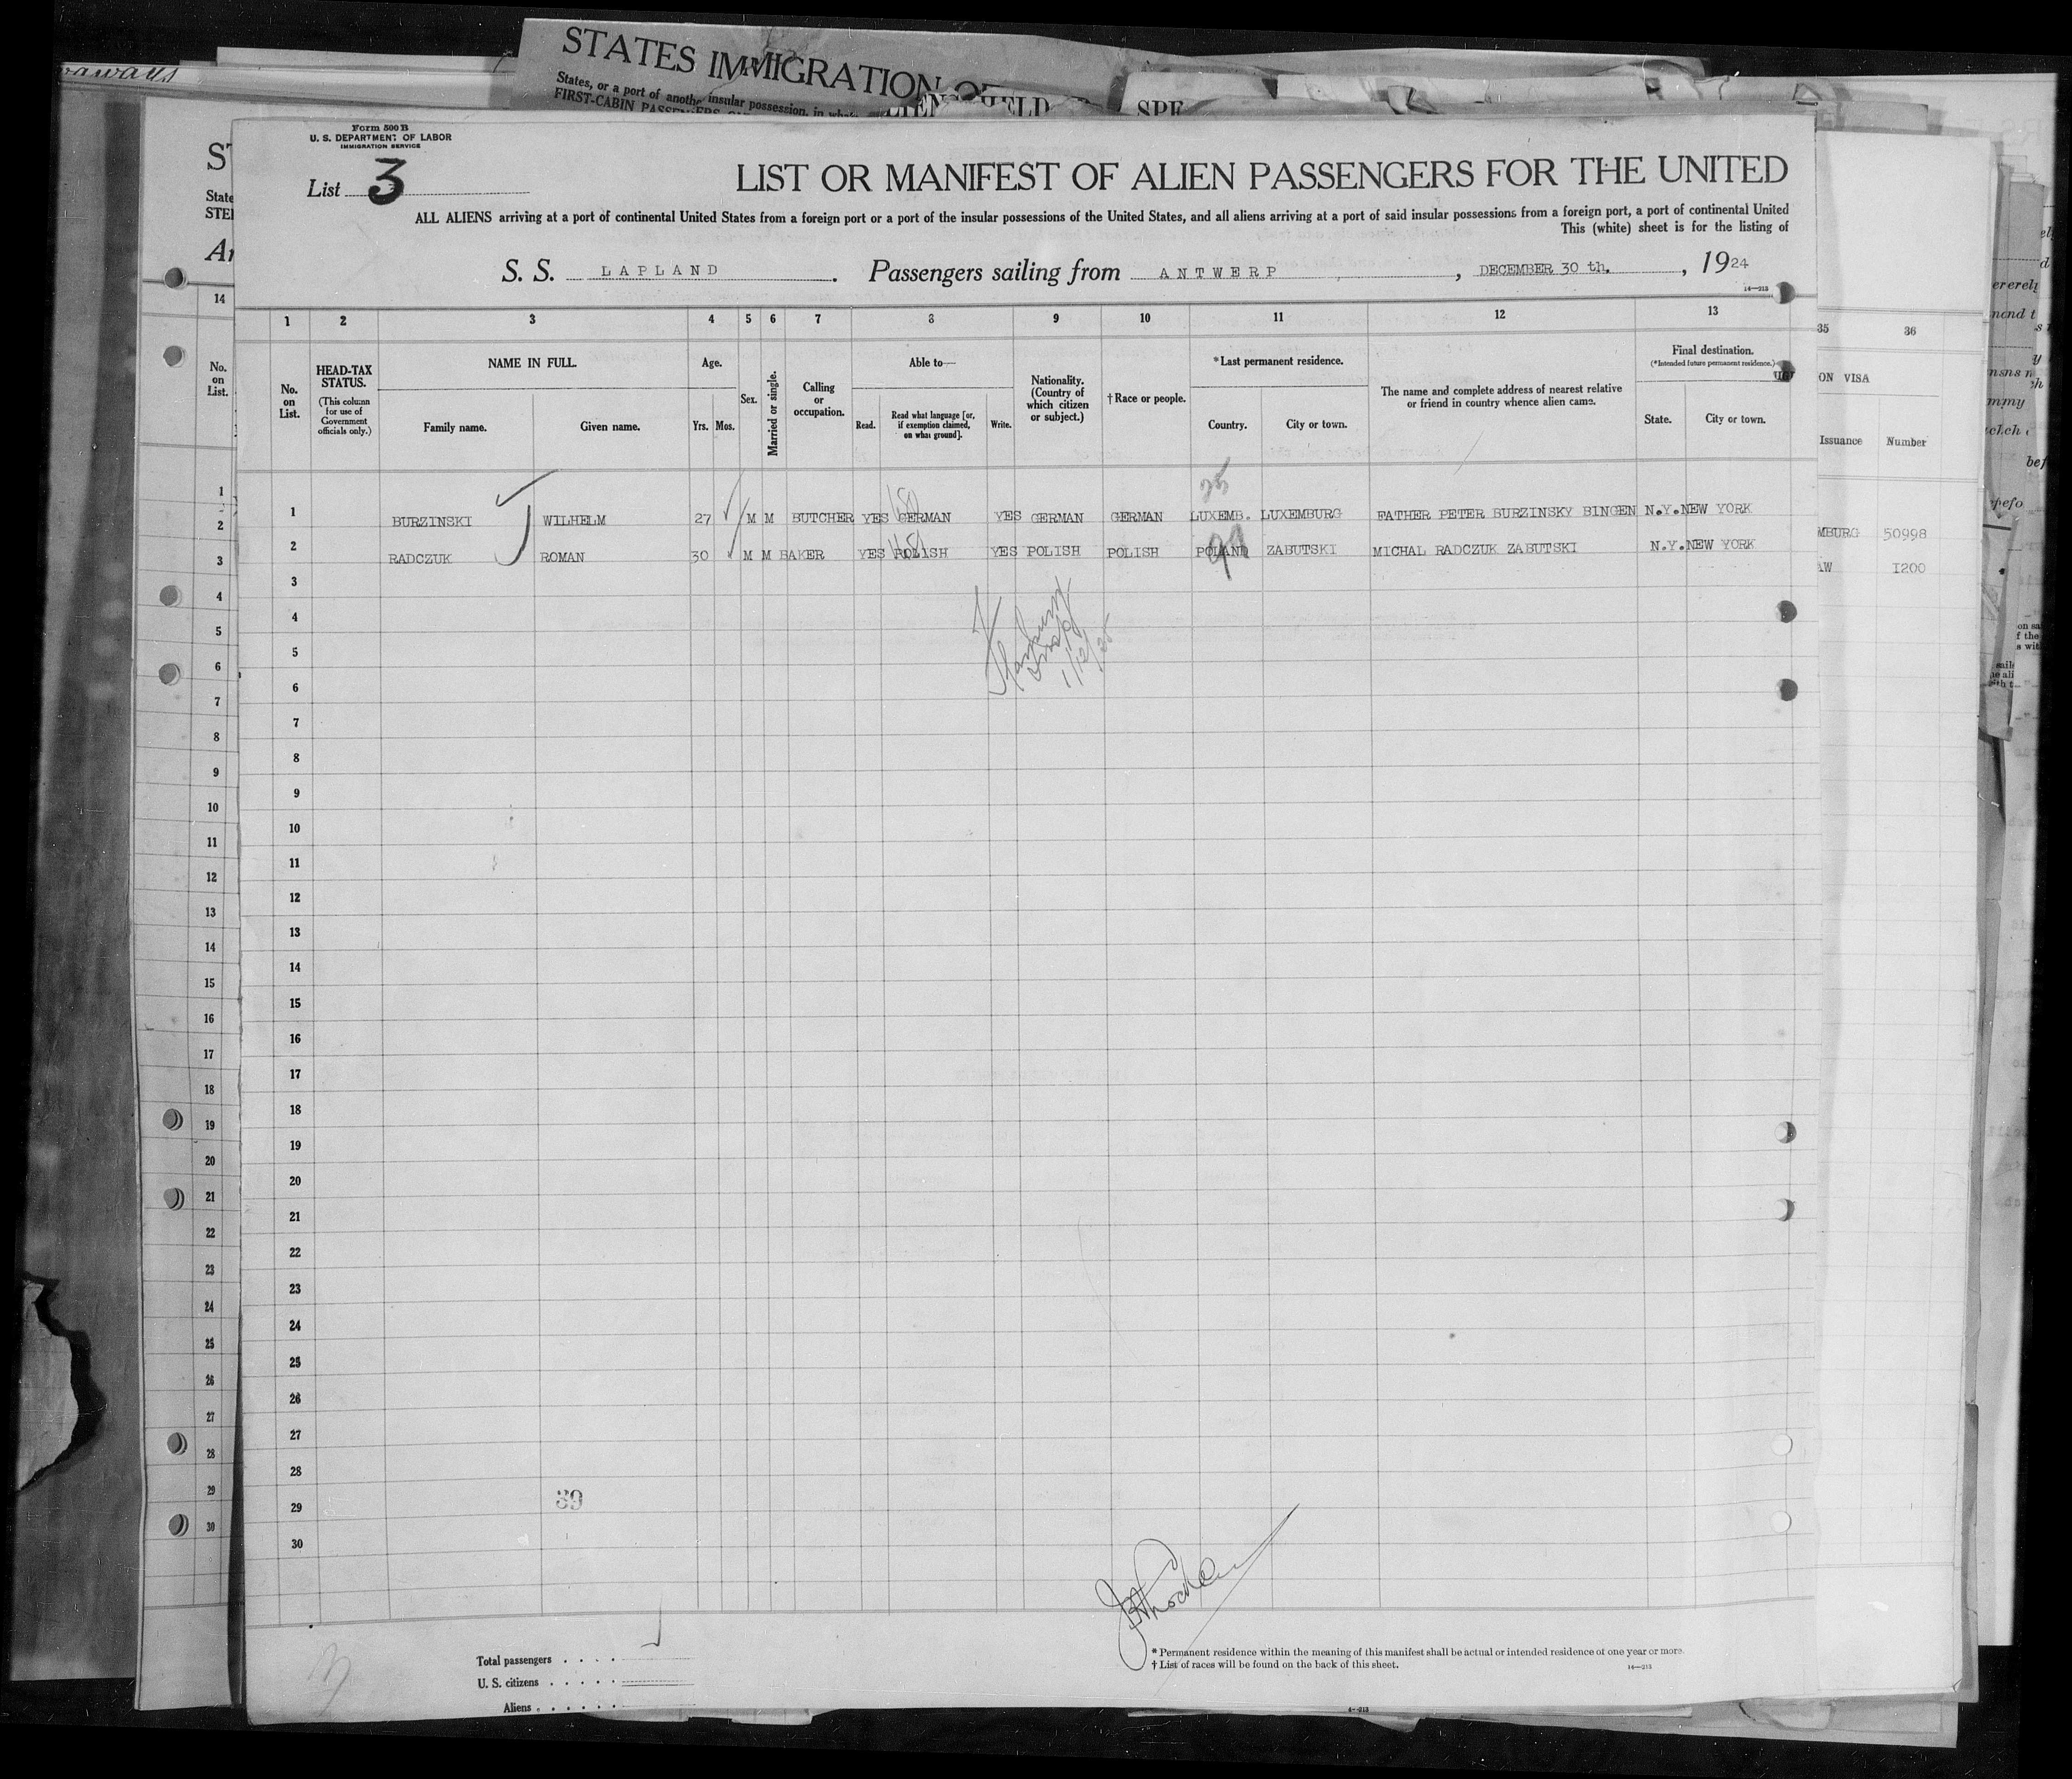 STATES IMMIGRATION
States, or a port of another insular possession, in whatever
FIRST-CABIN PASSENGERS
HELD
SPE
Form 500 B
U. S. DEPARTMENT OF LABOR
IMMIGRATION SERVICE
List 3
LIST OR MANIFEST OF ALIEN PASSENGERS FOR THE UNITED
ALL ALIENS arriving at a port of continental United States from a foreign port or a port of the insular possessions of the United States, and all aliens arriving at a port of said insular possessions from a foreign port, a port of continental United
This (white) sheet is for the listing of
S. S. LAPLAND. Passengers sailing from ANTWERP, DECEMBER 30 th., 1924
14—213
1 2 3 4 5 6 7 8 9 10 11 12 13
No. on List.
HEAD-TAX STATUS.
(This column for use of Government officials only.)
NAME IN FULL.
Family name. Given name.
Age.
Yrs. Mos.
Sex.
Married or single.
Calling or occupation.
Able to—
Read. Read what language [or, if exemption claimed, on what ground]. Write.
Nationality. (Country of which citizen or subject.)
† Race or people.
*Last permanent residence.
Country. City or town.
The name and complete address of nearest relative or friend in country whence alien came.
Final destination.
(*Intended future permanent residence.)
State. City or town.
1 BURZINSKI WILHELM 27 M M BUTCHER YES GERMAN YES GERMAN GERMAN LUXEMB. LUXEMBURG FATHER PETER BURZINSKY BINGEN N.Y. NEW YORK
2 RADCZUK ROMAN 30 M M BAKER YES POLISH YES POLISH POLISH POLAND ZABUTSKI MICHAL RADCZUK ZABUTSKI N.Y. NEW YORK
3
4
5
6
7
8
9
10
11
12
13
14
15
16
17
18
19
20
21
22
23
24
25
26
27
28
29
30
39
1/12/25
Total passengers
U. S. citizens
Aliens
* Permanent residence within the meaning of this manifest shall be actual or intended residence of one year or more.
† List of races will be found on the back of this sheet.
14—213
14
No. on List.
1
2
3
4
5
6
7
8
9
10
11
12
13
14
15
16
17
18
19
20
21
22
23
24
25
26
27
28
29
30
35 36
ON VISA
Issuance Number
MBURG 50998
AW 1200